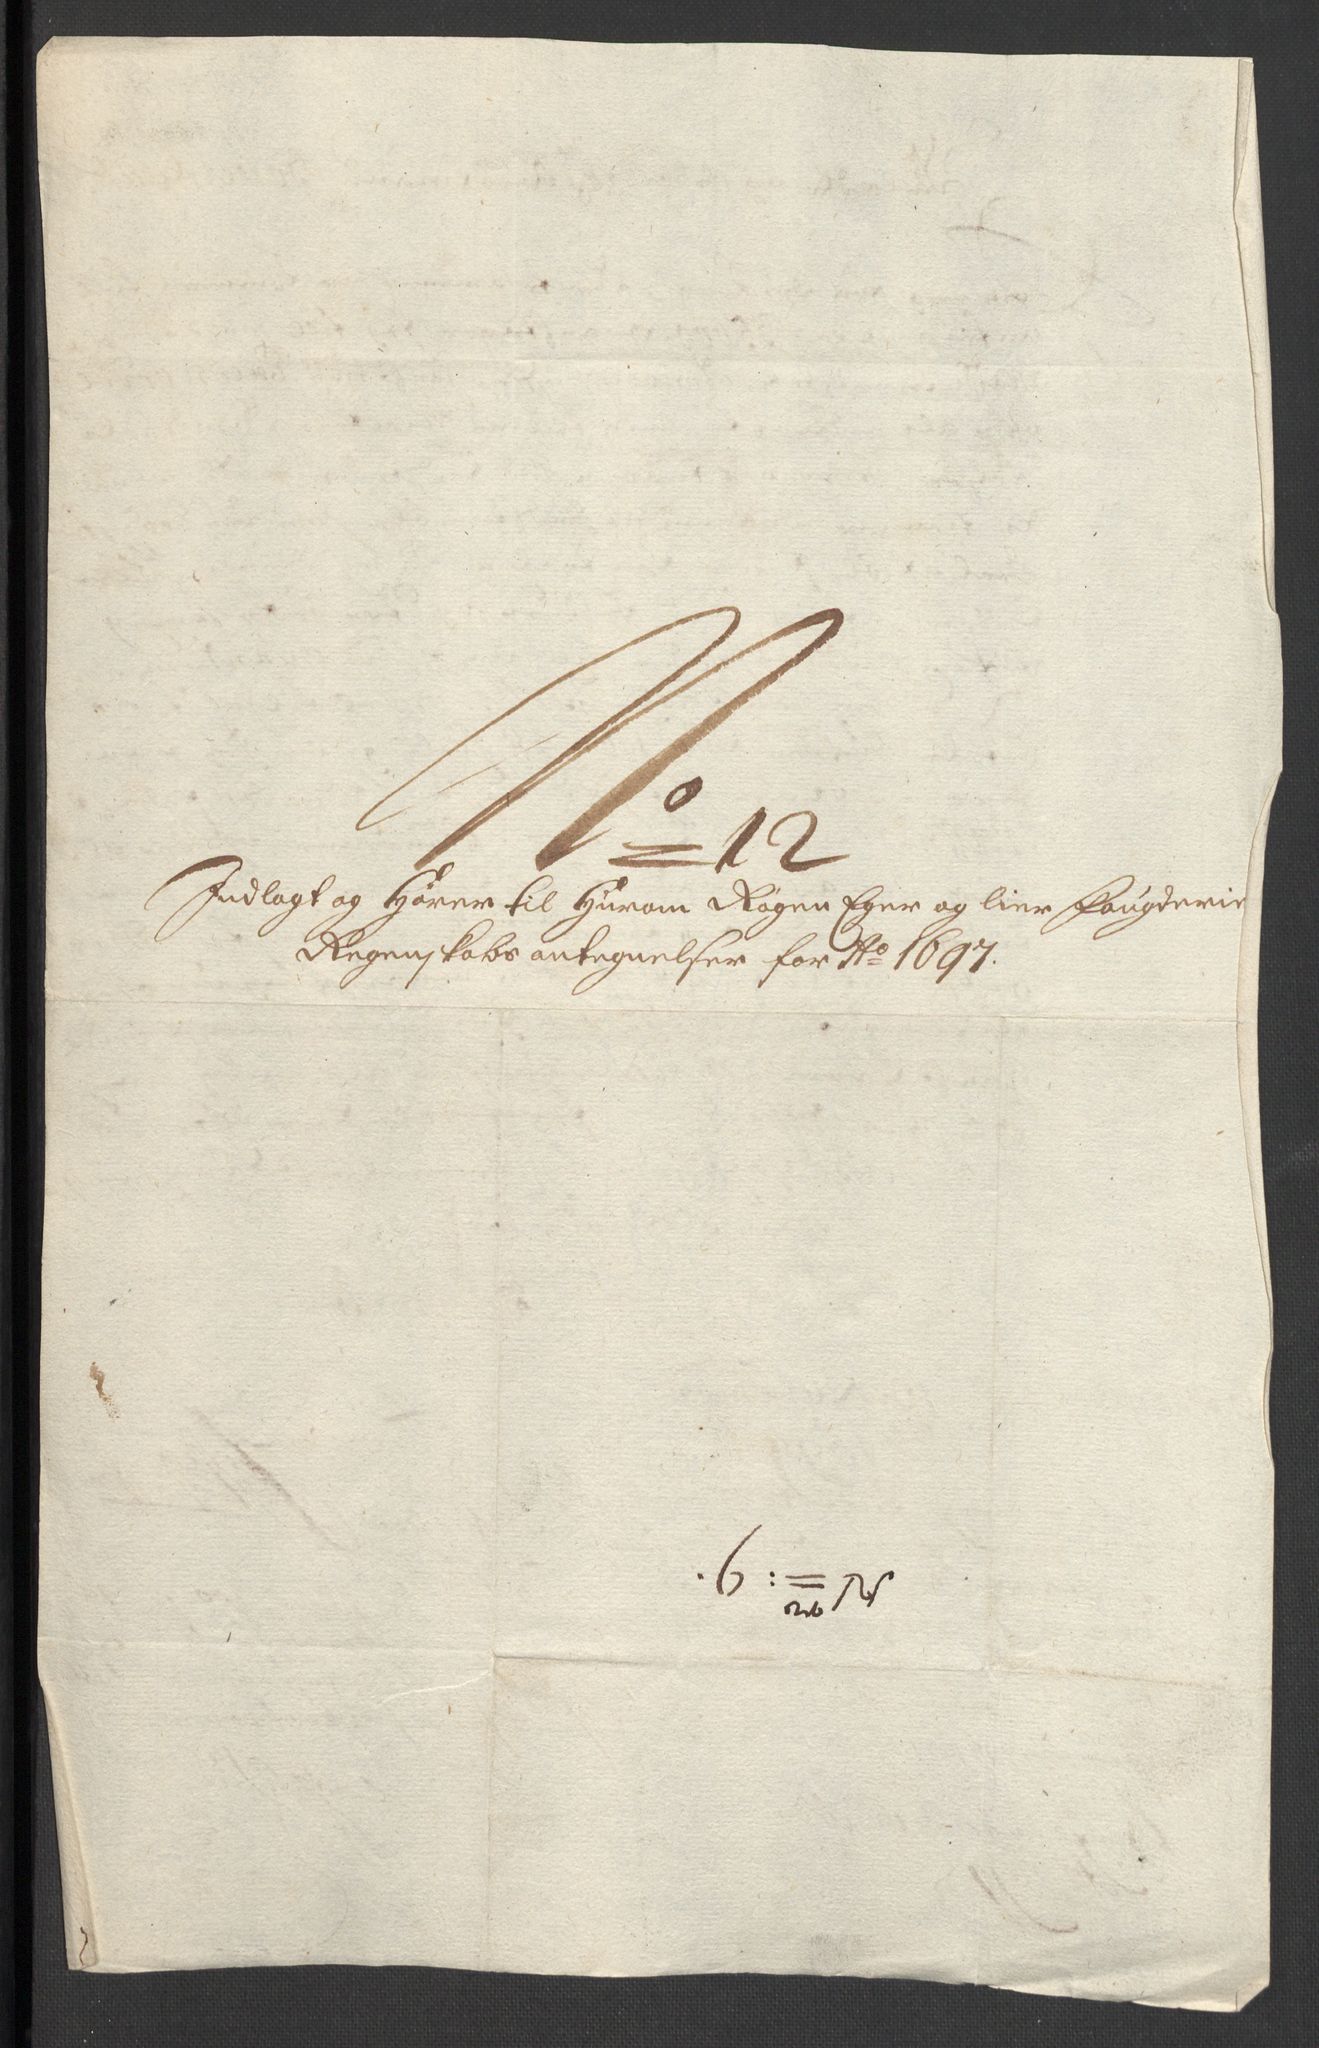 No 12
Indlagt og Hører til Hurom Røgen Eger og lier fougderie
Regenskabs antegnelser for Ao 1697.